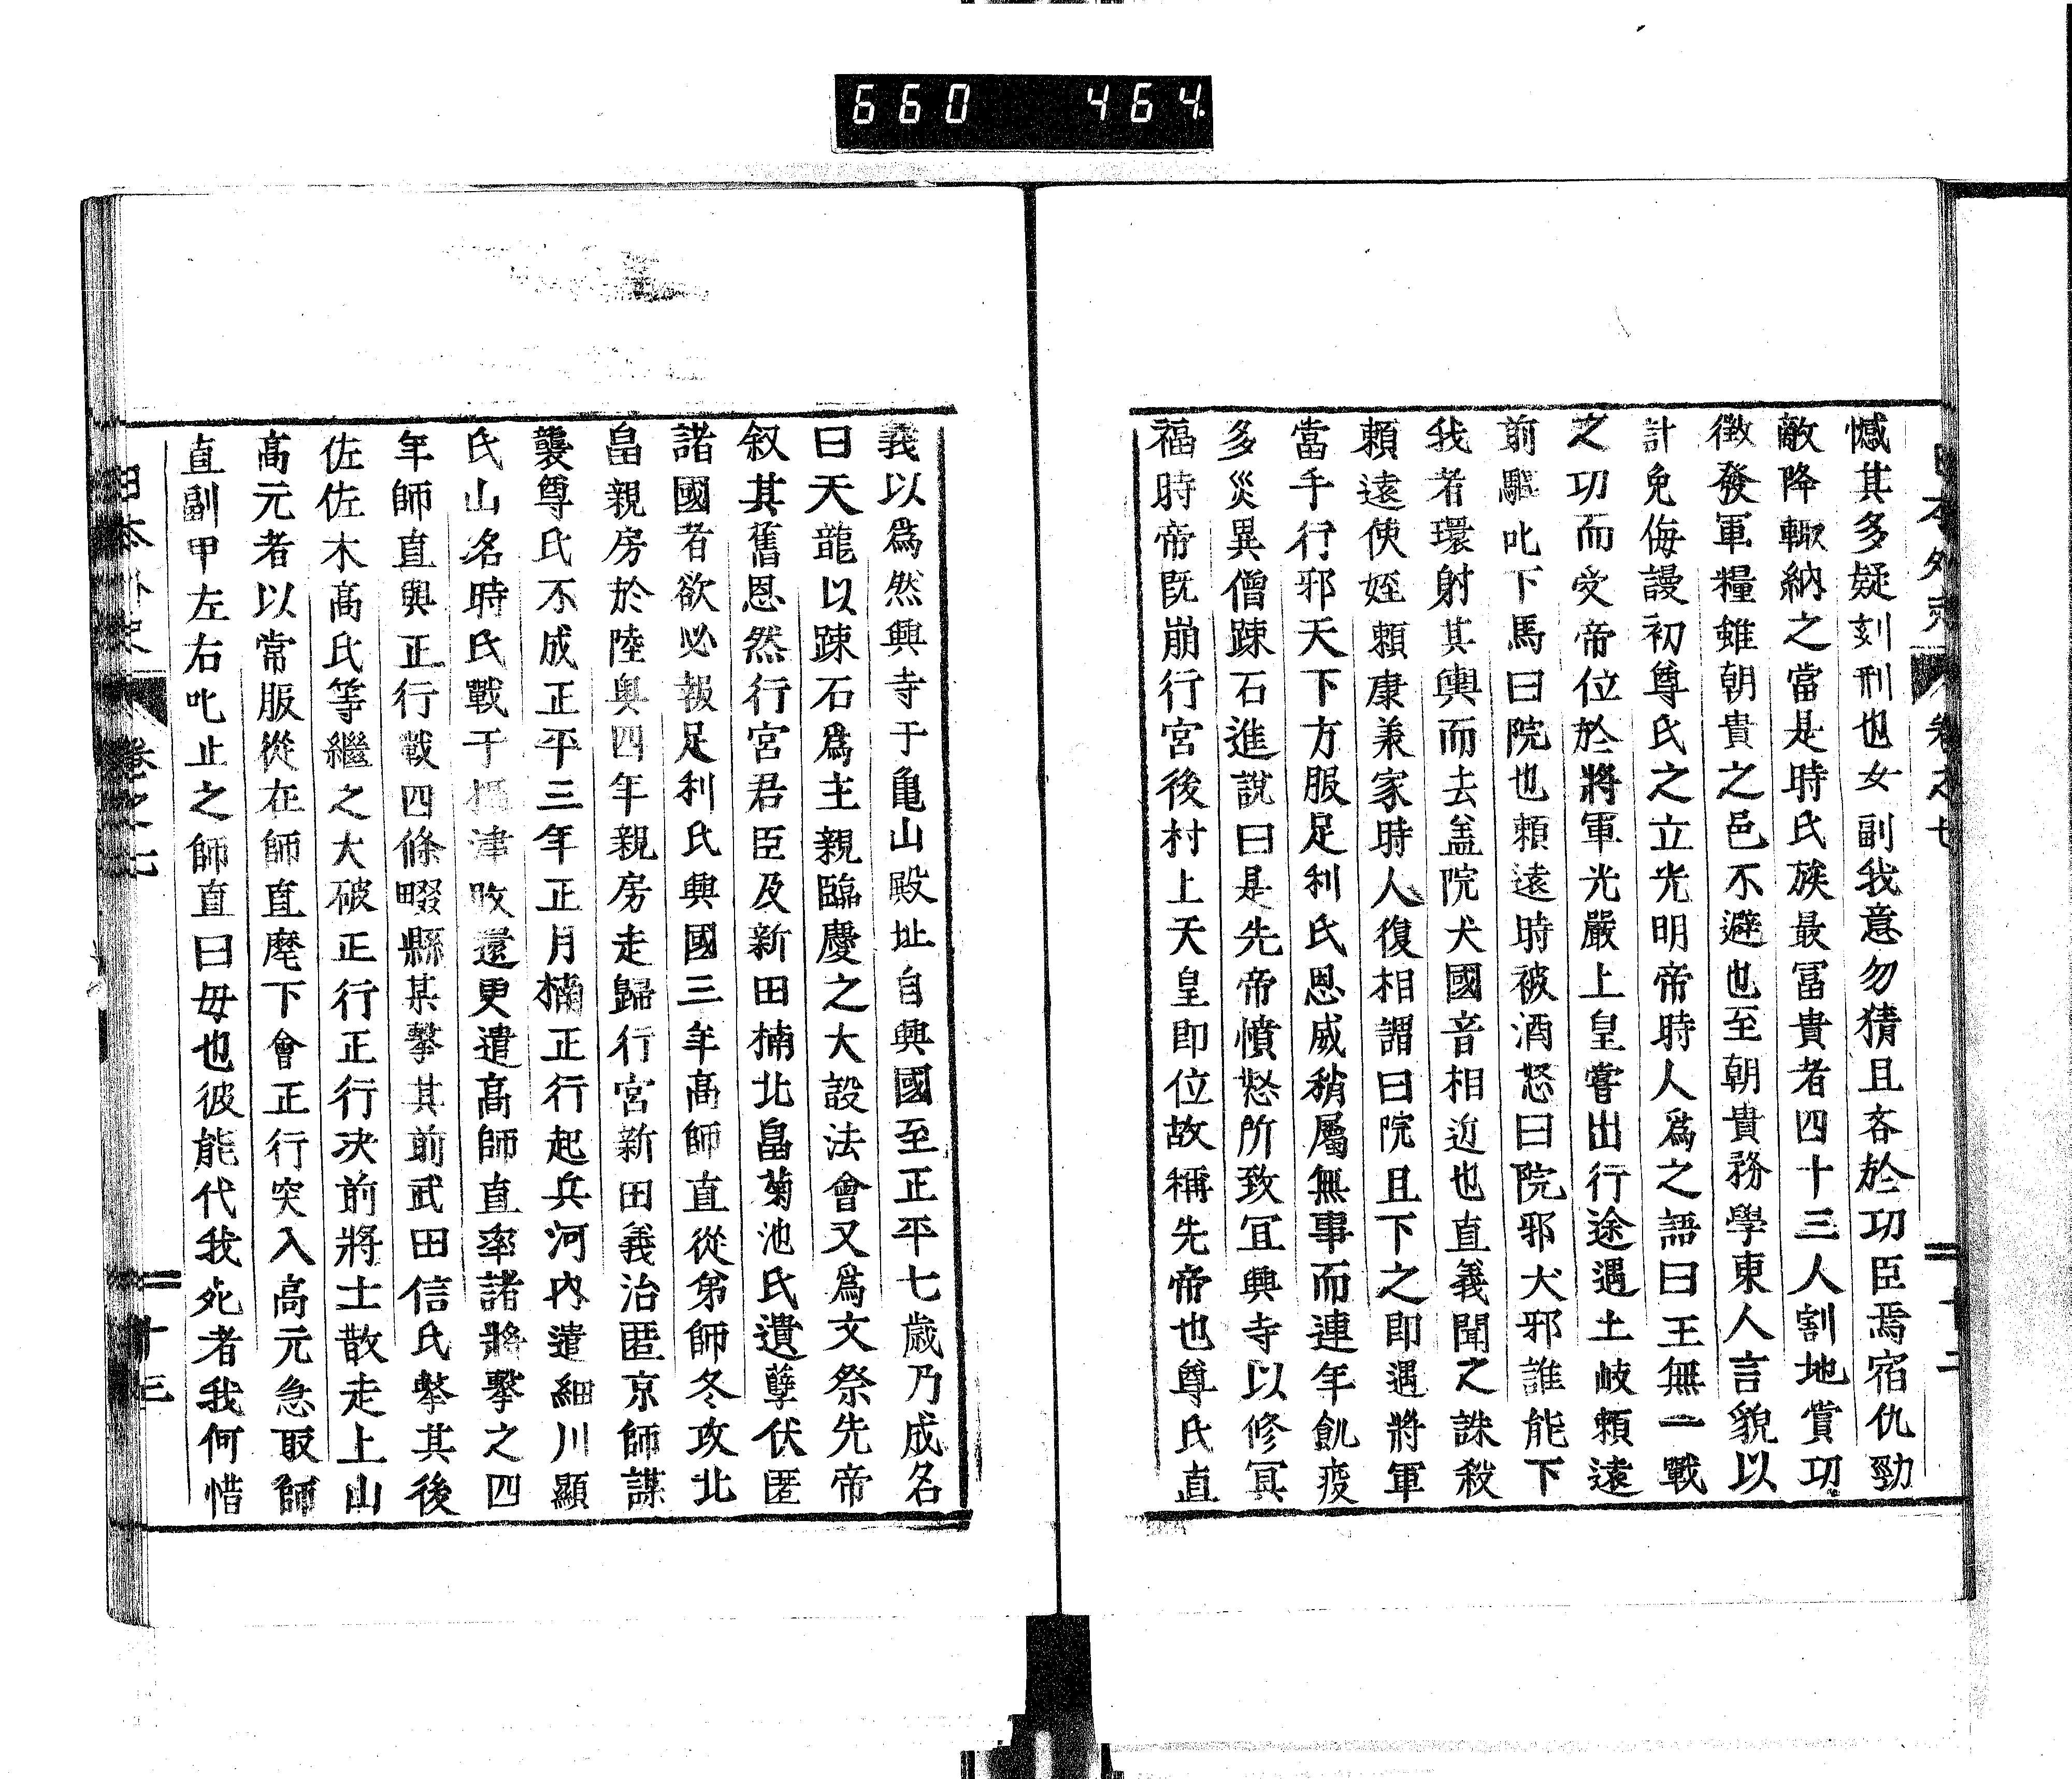 660 464.
日本外史 卷之七 十二
憾其多疑刻刑也女副我意勿猜且吝於功臣焉宿仇勁
敵降輙納之當是時氏族最冨貴者四十三人割地賞功
徴發軍糧雖朝貴之邑不避也至朝貴務學東人言貌以
計免侮謾初尊氏之立光明帝時人爲之語曰王無一戰
之功而受帝位於將軍光嚴上皇嘗出行途遇土岐頼遠
前驅叱下馬曰院也頼遠時被酒怒曰院邪犬邪誰能下
我者環射其輿而去盖院犬國音相近也直義聞之誅殺
頼遠使姪頼康兼家時人復相謂曰院且下之即遇將軍
當手行邪天下方服足利氏恩威稍屬無事而連年飢疫
多災異僧踈石進說曰是先帝憤愁所致冝興寺以修冥
福時帝既崩行宮後村上天皇即位故稱先帝也尊氏直
義以爲然興寺于亀山殿址自興國至正平七歳乃成名
曰天龍以踈石爲主親臨慶之大設法會又爲文祭先帝
叙其舊恩然行宮君臣及新田楠北畠菊池氏遺孽伏匿
諸國者欲必報足利氏興國三年高師直從弟師冬攻北
畠親房於陸奥四年親房走歸行宮新田義治匿京師謀
襲尊氏不成正平三年正月楠正行起兵河内遣細川顯
氏山名時氏戰于攝津敗還更遣高師直率諸將擊之四
年師直與正行戰四條畷縣某擊其前武田信氏擊其後
佐佐木高氏等繼之大破正行正行决前將士散走上山
高元者以常服從在師直麾下會正行突入高元急取師
直副甲左右叱止之師直曰毋也彼能代我死者我何惜
日本外史 卷之七 十三